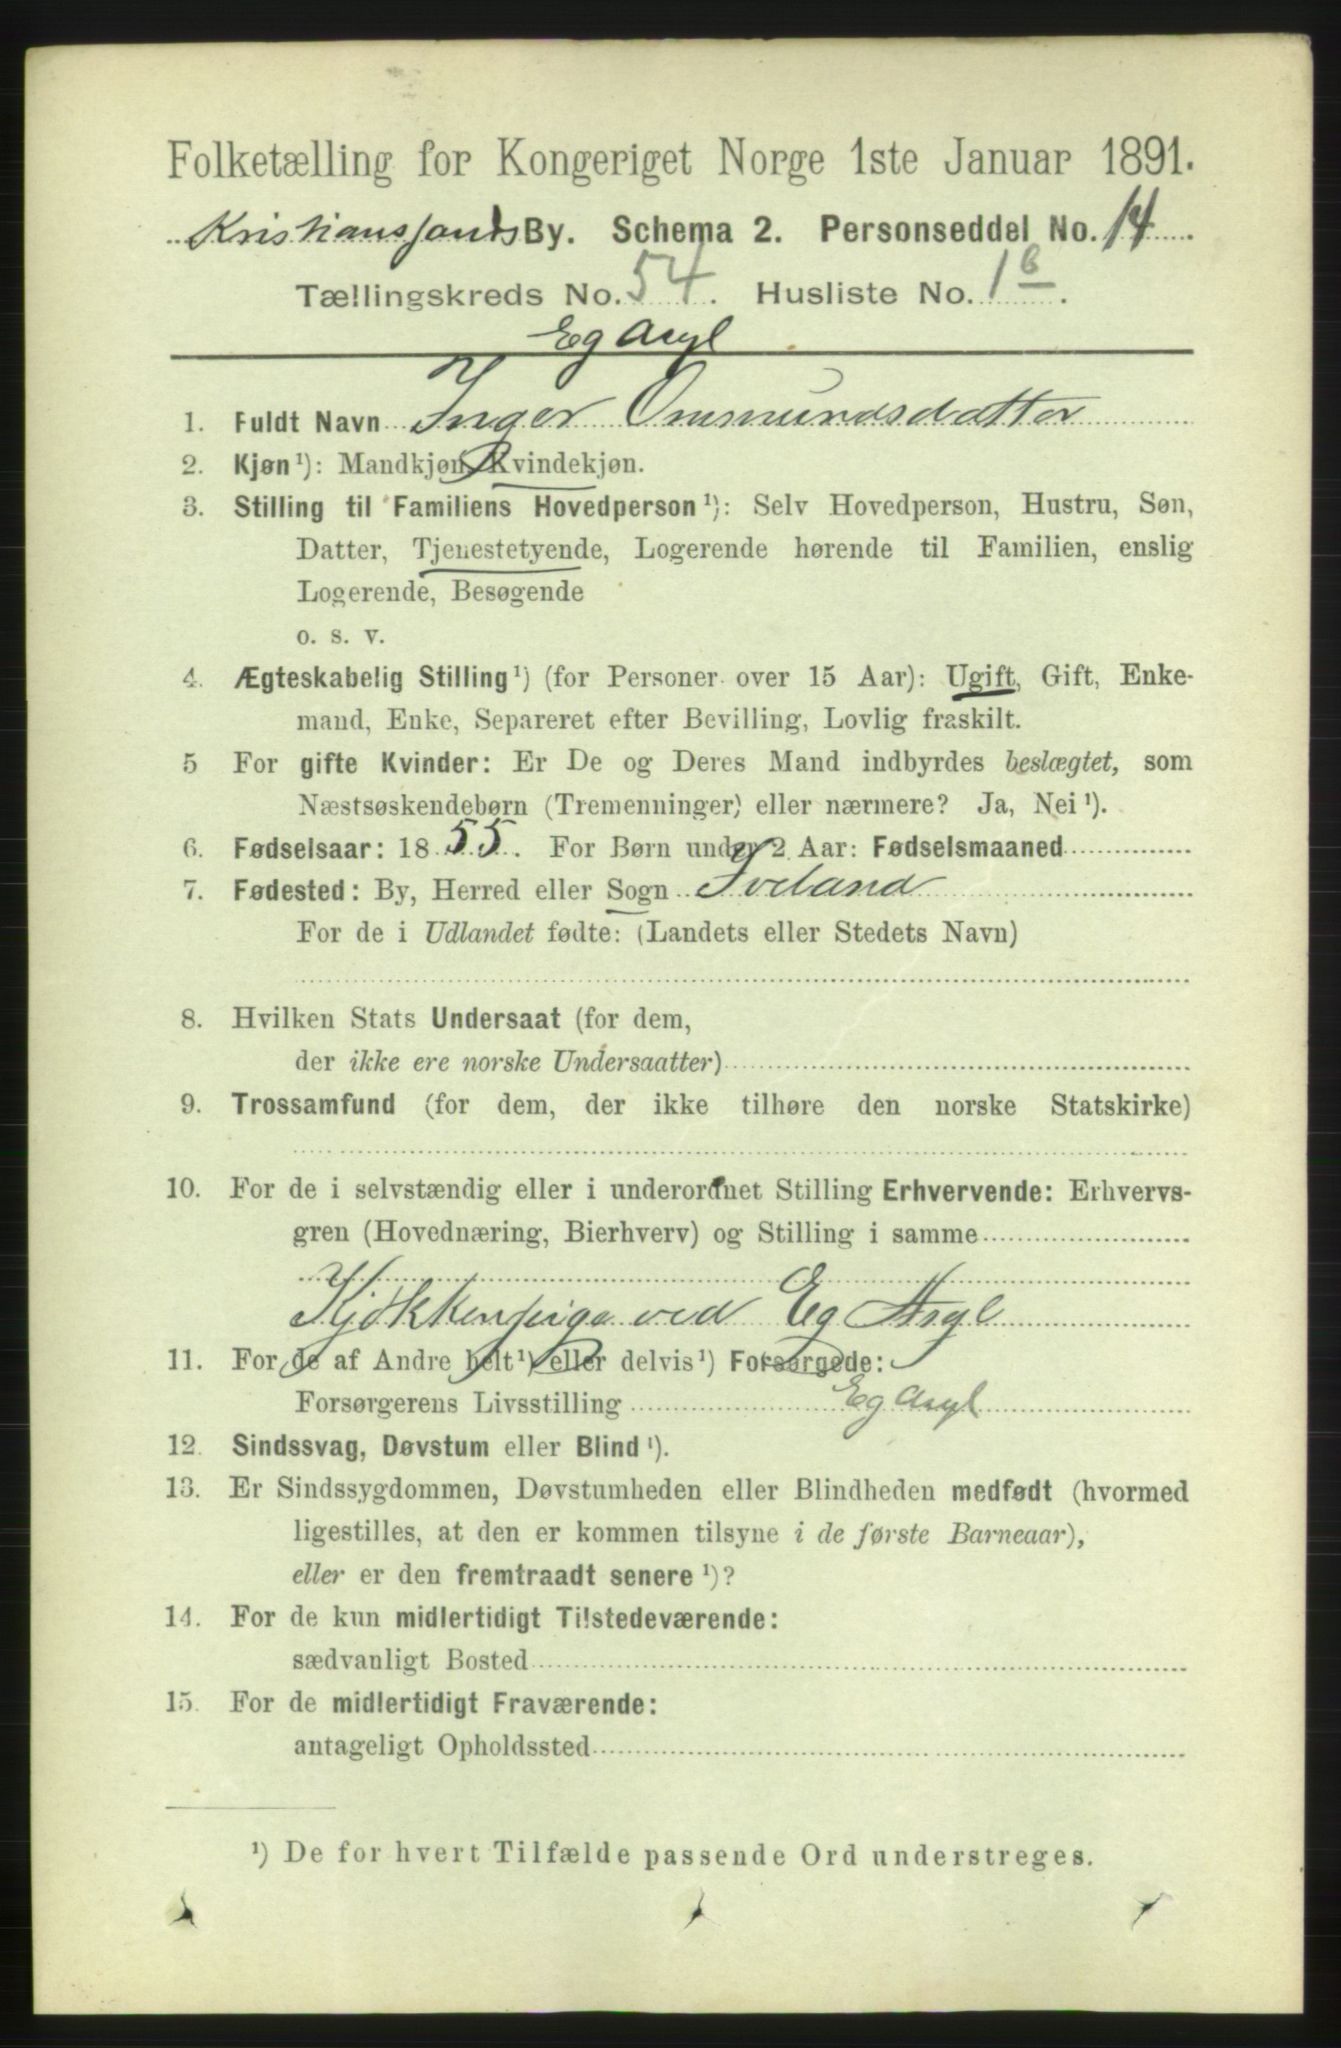 Folketælling for Kongeriget Norge 1ste Januar 1891.
Kristianssands By. Schema 2. Personseddel No. 14
Tællingskreds No. 54. Husliste No. 1B.
Eg Asyl
1. Fuldt Navn Inger Ommundsdatter
2. Kjøn¹): Mandkjøn, Kvindekjøn.
3. Stilling til Familiens Hovedperson¹): Selv Hovedperson, Hustru, Søn,
Datter, Tjenestetyende, Logerende hørende til Familien, enslig
Logerende, Besøgende
o. s. v.
4. Ægteskabelig Stilling¹) (for Personer over 15 Aar): Ugift, Gift, Enke-
mand, Enke, Separeret efter Bevilling, Lovlig fraskilt.
5 For gifte Kvinder: Er De og Deres Mand indbyrdes beslægtet, som
Næstsøskendebørn (Tremenninger) eller nærmere? Ja, Nei¹).
6. Fødselsaar: 1855. For Børn under 2 Aar: Fødselsmaaned
7. Fødested: By, Herred eller Sogn Iveland
For de i Udlandet fødte: (Landets eller Stedets Navn)
8. Hvilken Stats Undersaat (for dem,
der ikke ere norske Undersaatter)
9. Trossamfund (for dem, der ikke tilhøre den norske Statskirke)
10. For de i selvstændig eller i underordnet Stilling Erhvervende: Erhvervs-
gren (Hovednæring, Bierhverv) og Stilling i samme
Kjøkkenpige ved Eg Asyl
11. For de af Andre helt¹) eller delvis¹) Forsørgede:
Forsørgerens Livsstilling Eg Asyl
12. Sindssvag, Døvstum eller Blind¹).
13. Er Sindssygdommen, Døvstumheden eller Blindheden medfødt (hvormed
ligestilles, at den er kommen tilsyne i de første Barneaar),
eller er den fremtraadt senere¹)?
14. For de kun midlertidigt Tilstedeværende:
sædvanligt Bosted
15. For de midlertidigt Fraværende:
antageligt Opholdssted
¹) De for hvert Tilfælde passende Ord understreges.